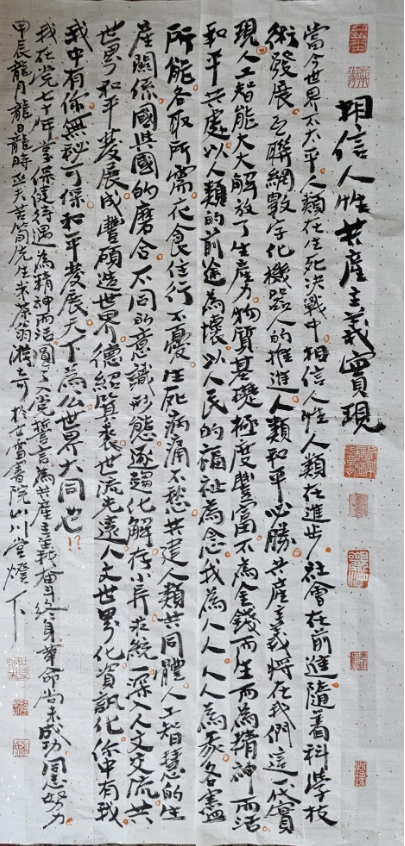 相信人性共產主義實現
當今世界不太平人類在生死決戰中相信人性人類在進步社會在前進隨着科學技
術發展互聯網數字化機器人的推進人類和平必勝共產主義將在我們這一代實
現人工智能大大解放了生產力物質基礎極度豐富不為金錢而生而為精神而活
和平共處以人類的前途為懷以人民的福祉為念我為人人人人為我各盡
所能各取所需衣食住行不憂生死病痛不愁共建人類共同體人工智慧的生
產關係國與國的磨合不同的意識形態逐趨化解存小异求統一深入人文交流共
世界和平發展成豐碩造世界德紹箕裘世流光遠人文世界化資訊化你中有我
我中有你無秘可保和平發展天下為公世界大同也
我在党七十年享保健待遇為精神而活圓了入党誓言為共產主義奮斗終身革命尚未成功同志努力
甲辰龍月龍日龍時 先生 書院山川堂燈下